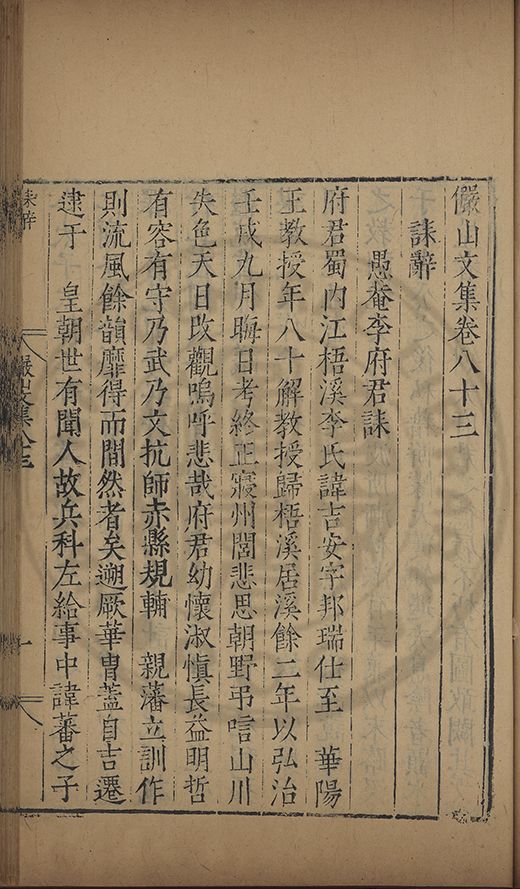 儼山文集卷八十三
誄辭
愚菴李府君誄
府君蜀內江梧溪李氏諱吉安字邦瑞仕至　華陽
王教授年八十解教授歸梧溪居溪餘二年以弘治
壬戌九月晦日考終正寢州閭悲思朝野弔唁山川
失色天日改觀嗚呼悲哉府君幼懷淑慎長益明哲
有容有守乃武乃文抗師赤縣規輔　親藩立訓作
則流風餘韻靡得而間然者矣遡厥華胄蓋自吉遷
逮于　皇朝世有聞人故兵科左給事中諱蕃之子
誄辭
儼山文集八十三
一